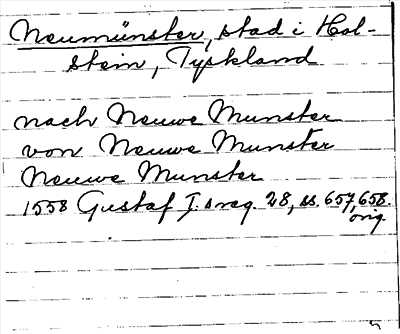 Neumünster, stad i Hol-
stein, Tyskland
nach Neuwe Munster
von Neuwe Munster
Neuwe Munster
1558 Gustaf I:s reg. 28, ss. 657, 658.
orig.